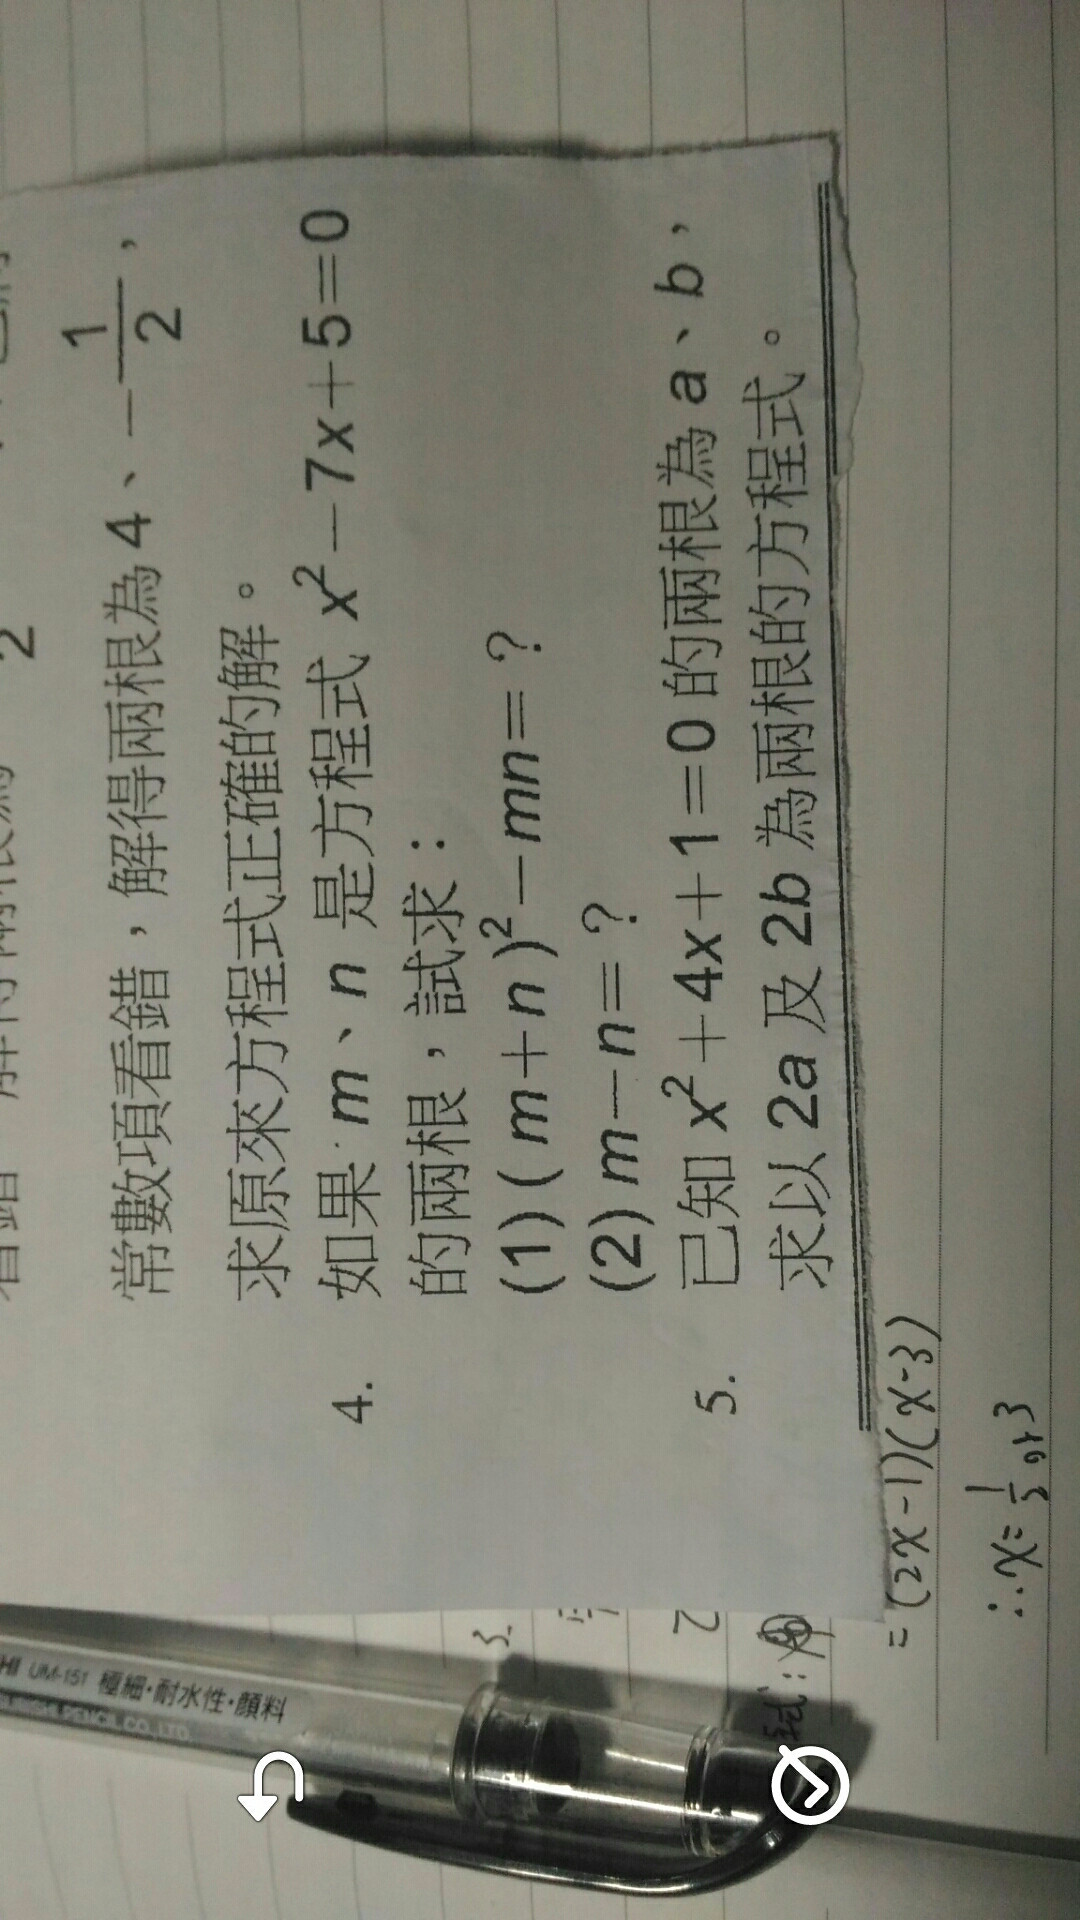 2
常數項看錯，解得兩根為 4、-1/2，
求原來方程式正確的解。
4. 如果 m、n 是方程式 x²－7x＋5＝0
的兩根，試求：
(1) ( m＋n )²－mn＝？
(2) m－n＝？
5. 已知 x²＋4x＋1＝0 的兩根為 a、b，
求以 2a 及 2b 為兩根的方程式。
3.
=(2x-1)(x-3)
∴x=1/2 or 3
UM-151 極細·耐水性·顏料
PENCIL CO., LTD.